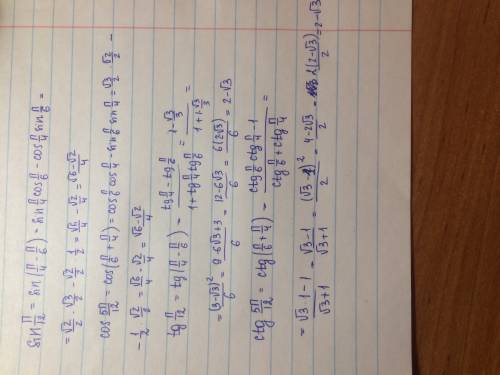 sin π/12 = sin(π/4 - π/6) = sin π/4 cos π/6 - cos π/4 sin π/6 =
= √2/2 · √3/2 - √2/2 · 1/2 = √6/4 - √2/4 = (√6-√2)/4
cos 5π/12 = cos(π/6 + π/4) = cos π/6 cos π/4 - sin π/6 sin π/4 = √3/2 · √2/2 -
- 1/2 · √2/2 = √6/4 - √2/4 = (√6-√2)/4
tg π/12 = tg(π/4 - π/6) = (tg π/4 - tg π/6)/(1 + tg π/4 tg π/6) = (1 - √3/3)/(1 + 1·√3/3) =
= (3-√3)²/6 = (9-6√3+3)/6 = (12-6√3)/6 = 6(2-√3)/6 = 2-√3
ctg 5π/12 = ctg(π/6 + π/4) = (ctg π/6 ctg π/4 - 1)/(ctg π/6 + ctg π/4) =
= (√3·1-1)/(√3+1) = (√3-1)/(√3+1) = (√3-1)²/2 = (4-2√3)/2 = 2(2-√3)/2 = 2-√3